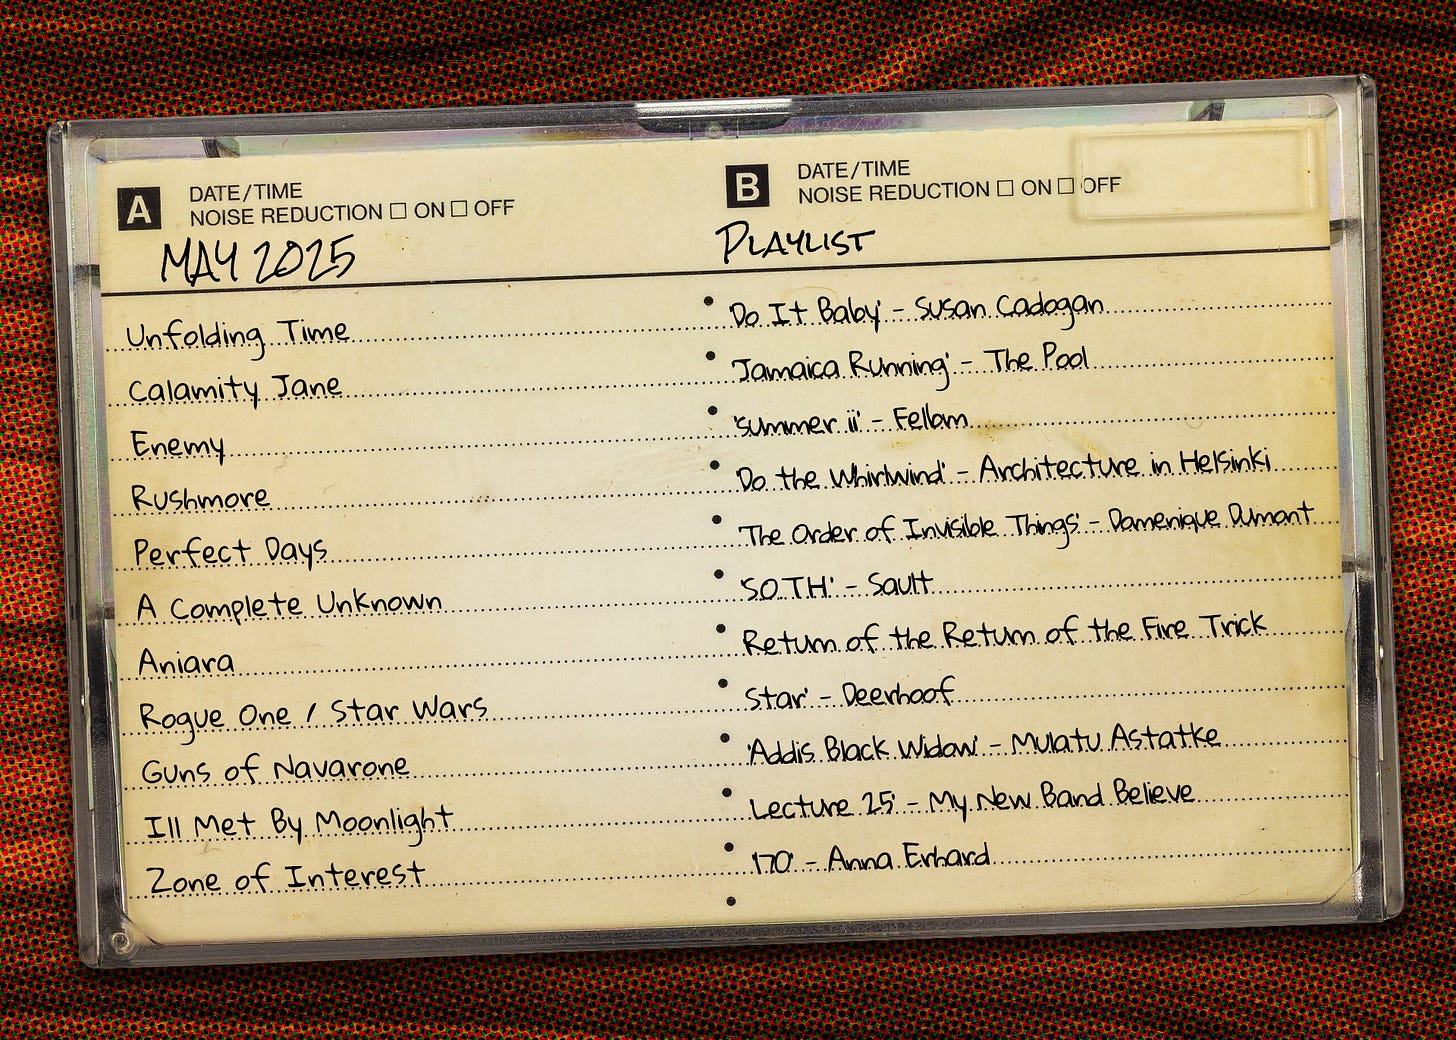 A
DATE/TIME
NOISE REDUCTION ☐ ON ☐ OFF
MAY 2025
Unfolding Time
Calamity Jane
Enemy
Rushmore
Perfect Days
A Complete Unknown
Aniara
Rogue One / Star Wars
Guns of Navarone
Ill Met By Moonlight
Zone of Interest
B
DATE/TIME
NOISE REDUCTION ☐ ON ☐ OFF
PLAYLIST
'Do It Baby' - Susan Cadogan
'Jamaica Running' - The Pool
'Summer ii' - Fellam
'Do the Whirlwind' - Architecture in Helsinki
'The Order of Invisible Things' - Domenique Dumont
'S.O.T.H.' - Sault
'Return of the Return of the Fire Trick
Star' - Deerhoof
'Addis Black Widow' - Mulatu Astatke
'Lecture 25' - My New Band Believe
'170' - Anna Erhard